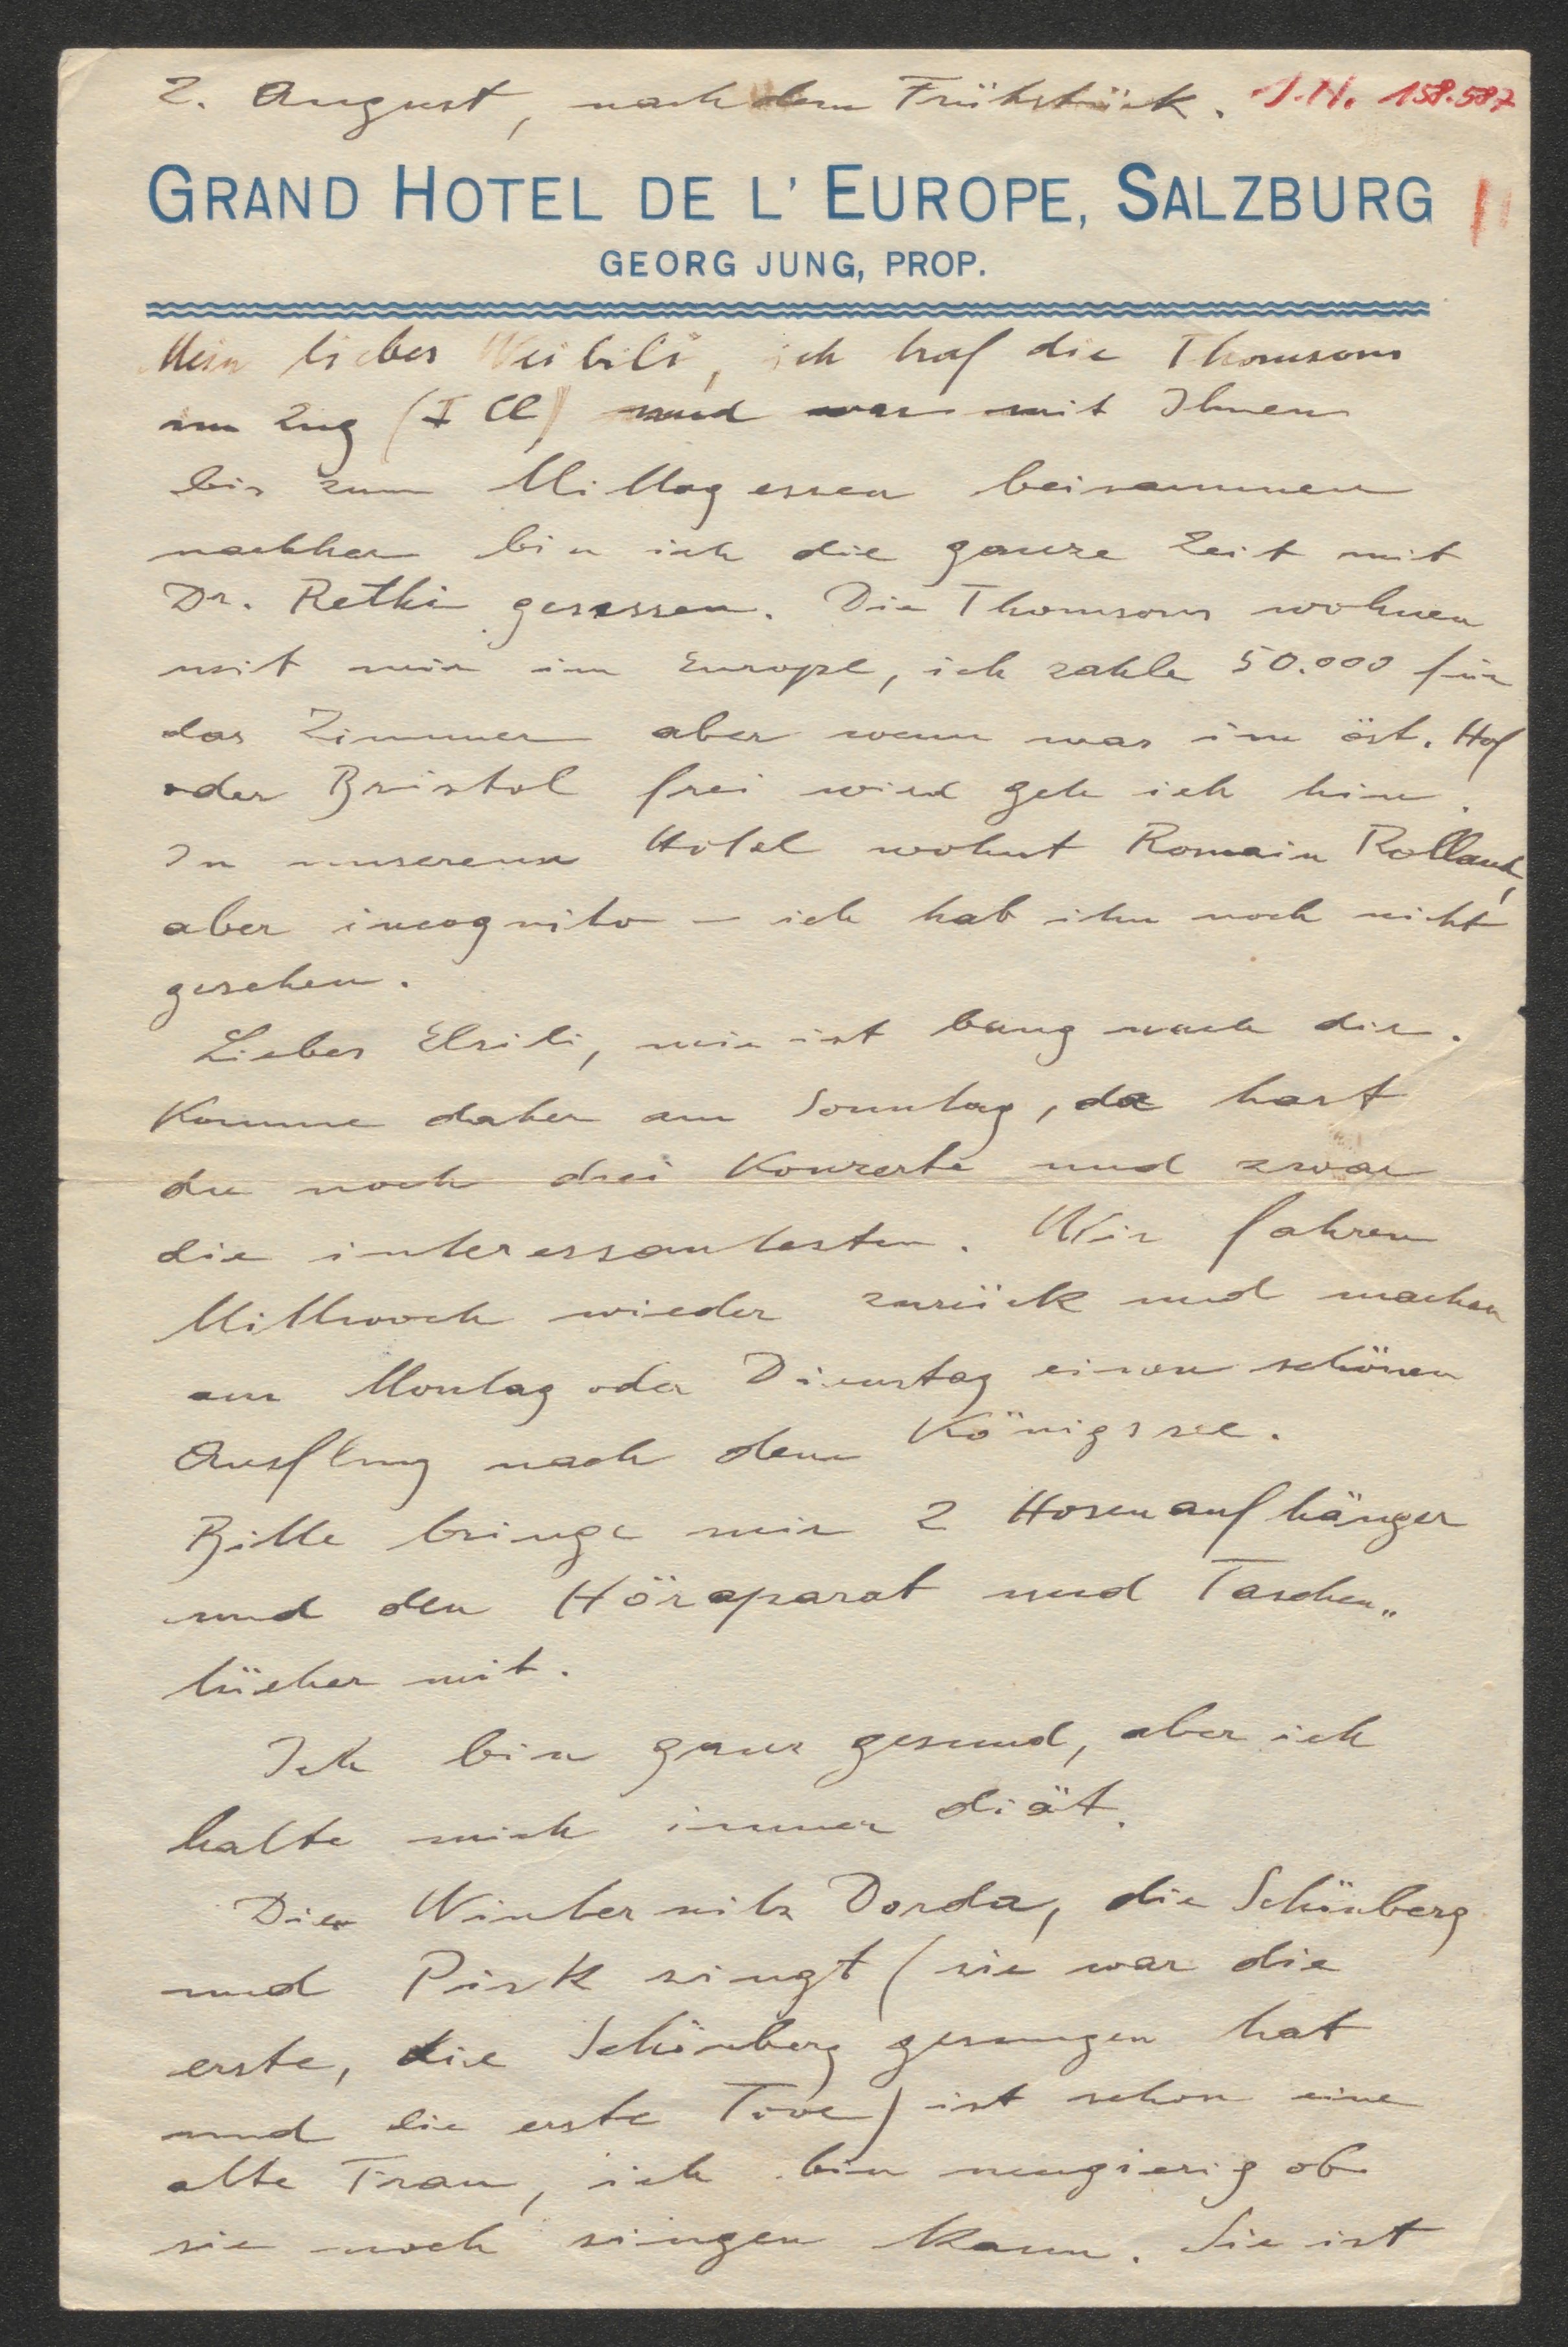 2. August, nach dem Frühstück. I.N. 158.587
GRAND HOTEL DE L' EUROPE, SALZBURG
GEORG JUNG, PROP.
Mein liebes Weibili, ich traf die Thomsons
im Zug (I Cl) und war mit Ihnen
bis zum Mittagessen beisammen
nachher bin ich die ganze Zeit mit
Dr. Rethi gesessen. Die Thomsons wohnen
mit mir im Europe, ich zahle 50.000 für
das Zimmer aber wenn was im öst. Hof
oder Bristol frei wird geh ich hin.
In unserem Hotel wohnt Romain Rolland,
aber incognito – ich hab ihn noch nicht
gesehen.
Liebes Elsili, mir ist bang nach dir.
Komme daher am Sonntag, da hast
du noch drei Konzerte und zwar
die interessantesten. Wir fahren
Mittwoch wieder zurück und machen
am Montag oder Dienstag einen schönen
Ausflug nach dem Königssee.
Bitte bringe mir 2 Hosenaufhänger
und den Höraparat und Taschen„
tücher mit.
Ich bin ganz gesund, aber ich
halte mich immer diät.
Die Winternitz Dorda, die Schönberg
und Pisk singt (sie war die
erste, die Schönberg gesungen hat
und die erste Tove) ist schon eine
alte Frau, ich bin neugierig ob
sie noch singen kann. Sie ist